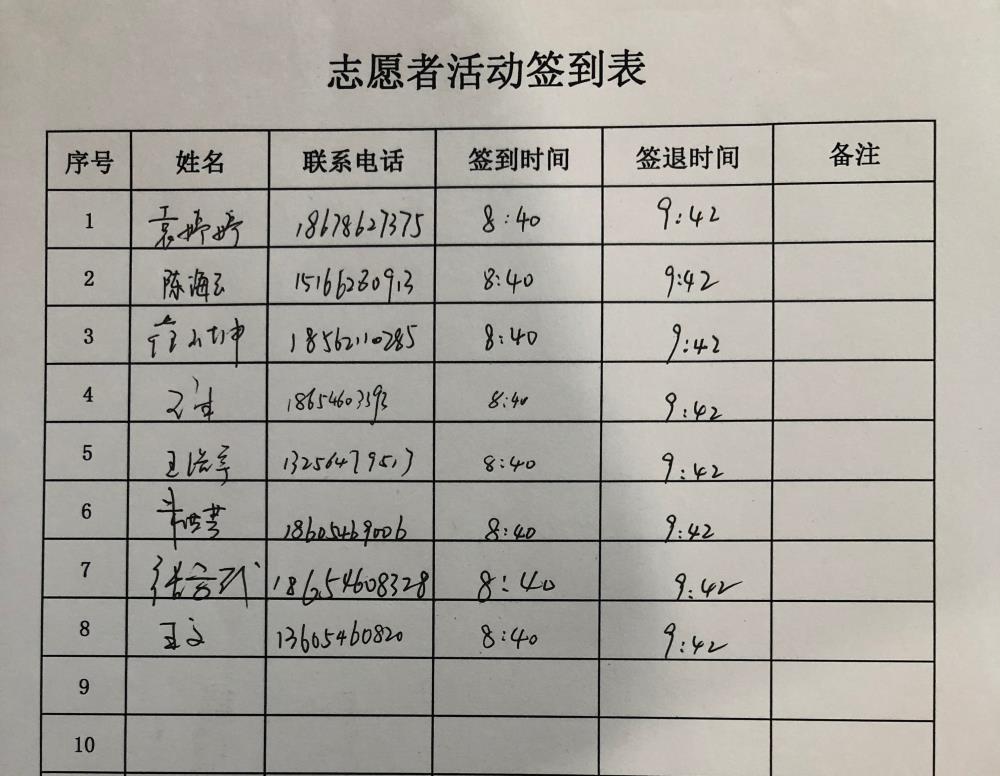 志愿者活动签到表
序号 姓名 联系电话 签到时间 签退时间 备注
1 袁婷婷 18678627375 8:40 9:42
2 陈海云 15166230913 8:40 9:42
3 18562110285 8:40 9:42
4 18654603393 8:40 9:42
5 王浩宇 13256479513 8:40 9:42
6 18605469006 8:40 9:42
7 18654608328 8:40 9:42
8 王文 13605460820 8:40 9:42
9
10